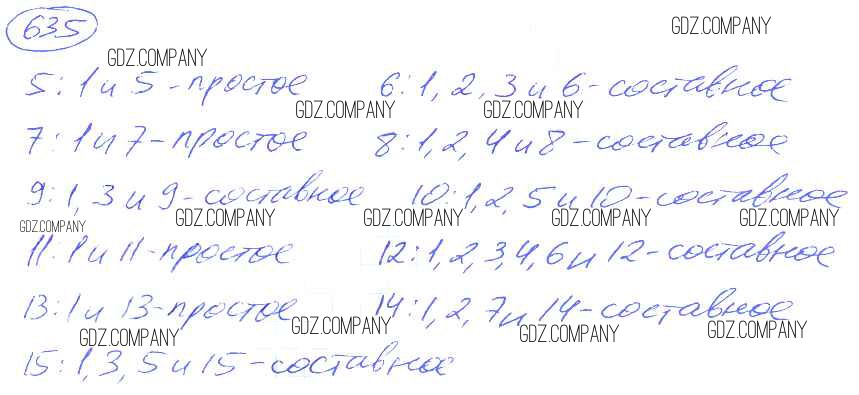 635
GDZ.COMPANY
GDZ.COMPANY
5: 1 и 5 - простое 6: 1, 2, 3 и 6 - составное
GDZ.COMPANY GDZ.COMPANY
7: 1 и 7 - простое 8: 1, 2, 4 и 8 - составное
9: 1, 3 и 9 - составное 10: 1, 2, 5 и 10 - составное
GDZ.COMPANY GDZ.COMPANY GDZ.COMPANY GDZ.COMPANY GDZ.COMPANY
11: 1 и 11 - простое 12: 1, 2, 3, 4, 6 и 12 - составное
13: 1 и 13 - простое 14: 1, 2, 7 и 14 - составное
GDZ.COMPANY GDZ.COMPANY GDZ.COMPANY GDZ.COMPANY
15: 1, 3, 5 и 15 - составное